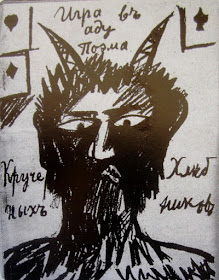 Игра въ
аду
Поэма
Круче
ныхъ
Хлеб
никовъ